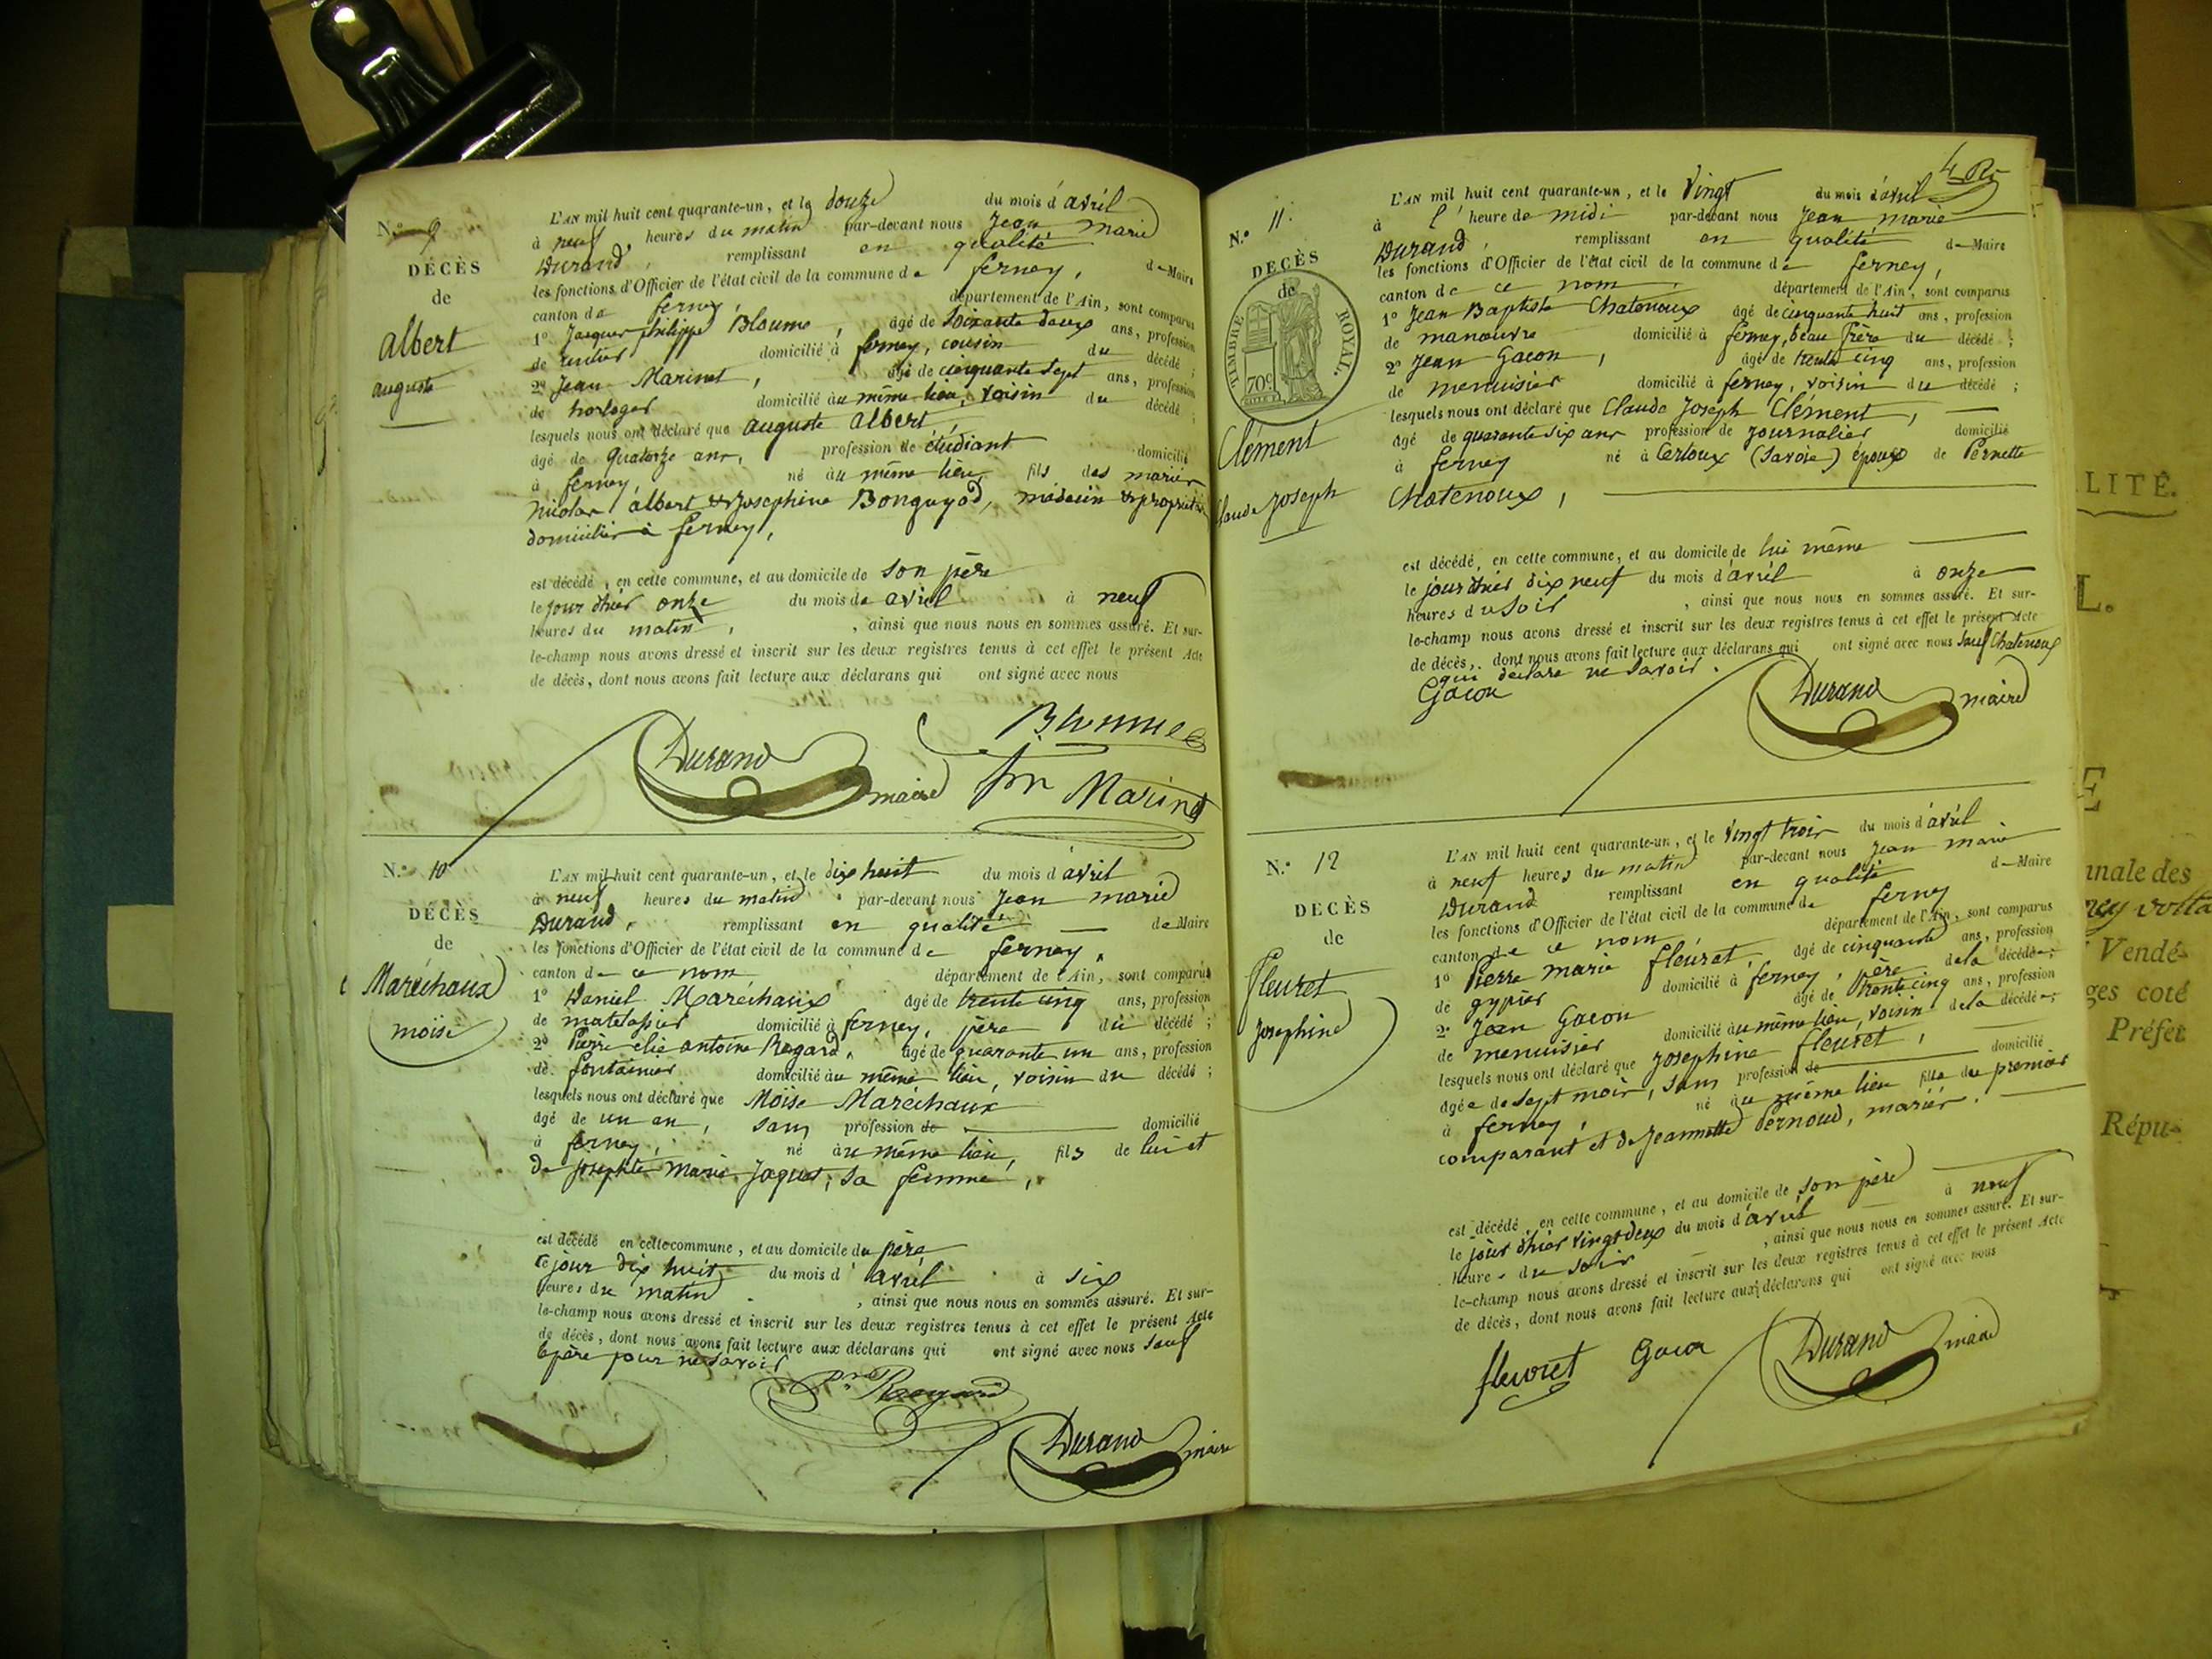 N.º 9
DÉCÈS
de
albert
auguste
L'AN mil huit cent quarante-un, et le douze du mois d'avril
à neuf heures du matin par-devant nous Jean marie
Durand, remplissant en qualité de Maire
les fonctions d'Officier de l'état civil de la commune de ferney,
canton de ferney, département de l'Ain, sont comparus
1º Jacques philippe Bloume, âgé de soixante deux ans, profession
de rentier domicilié à ferney, cousin du décédé;
2º Jean Marinet, âgé de cinquante sept ans, profession
de horloger domicilié au même lieu, voisin du décédé;
lesquels nous ont déclaré que auguste albert,
âgé de quatorze ans, profession de étudiant domicilié
à ferney, né au même lieu, fils des mariés
Nicolas albert & Josephine Bonguyod, médecin & propriétaire
domiciliés à ferney,
est décédé, en cette commune, et au domicile de son père
le jour d'hier onze du mois de avril à neuf
heures du matin, , ainsi que nous nous en sommes assuré. Et sur-
le-champ nous avons dressé et inscrit sur les deux registres tenus à cet effet le présent Acte
de décès, dont nous avons fait lecture aux déclarans qui ont signé avec nous
Bloume
Durand maire
Jn Marinet
N.º 10
DÉCÈS
de
Maréchaux
moïse
L'AN mil huit cent quarante-un, et le dix huit du mois d'avril
à neuf heures du matin par-devant nous Jean marie
Durand, remplissant en qualité de Maire
les fonctions d'Officier de l'état civil de la commune de ferney,
canton de ce nom département de l'Ain, sont comparus
1º Daniel Maréchaux âgé de trente cinq ans, profession
de matelassier domicilié à ferney, père du décédé;
2º Pierre elie antoine Regard, âgé de quarante un ans, profession
de fontainier domicilié au même lieu, voisin du décédé;
lesquels nous ont déclaré que Moïse Maréchaux
âgé de un an, sans profession de domicilié
à ferney, né au même lieu, fils de lui et
de Josephte Marie Jaques, sa femme,
est décédé en cette commune, et au domicile du père
ce jour dix huit du mois d'avril à six
heures du matin , ainsi que nous nous en sommes assuré. Et sur-
le-champ nous avons dressé et inscrit sur les deux registres tenus à cet effet le présent Acte
de décès, dont nous avons fait lecture aux déclarans qui ont signé avec nous sauf
le père pour ne savoir
Regard
Durand maire
4 
N.º 11
DÉCÈS
de
TIMBRE ROYAL.
70c
Clément
Claude Joseph
L'AN mil huit cent quarante-un, et le Vingt du mois d'avril
à l' heure de midi par-devant nous Jean marie
Durand, remplissant en qualité de Maire
les fonctions d'Officier de l'état civil de la commune de ferney,
canton de ce nom, département de l'Ain, sont comparus
1º Jean Baptiste Chatenoux âgé de cinquante huit ans, profession
de manœuvre domicilié à ferney, beau frère du décédé;
2º Jean Gacon, âgé de trente cinq ans, profession
de menuisier domicilié à ferney, voisin du décédé;
lesquels nous ont déclaré que Claude Joseph Clément,
âgé de quarante six ans profession de Journalier domicilié
à ferney né à Cerloux (Savoie) époux de Pernette
Chatenoux,
est décédé, en cette commune, et au domicile de lui même
le jour d'hier dix neuf du mois d'avril à onze
heures du soir , ainsi que nous nous en sommes assuré. Et sur-
le-champ nous avons dressé et inscrit sur les deux registres tenus à cet effet le présent Acte
de décès, dont nous avons fait lecture aux déclarans qui ont signé avec nous sauf Chatenoux
qui déclare ne savoir.
Gacon
Durand maire
N.º 12
DÉCÈS
de
fleuret
Josephine
L'AN mil huit cent quarante-un, et le vingt trois du mois d'avril
à neuf heures du matin par-devant nous Jean marie
Durand remplissant en qualité de Maire
les fonctions d'Officier de l'état civil de la commune de ferney
canton de ce nom département de l'Ain, sont comparus
1º Pierre marie fleuret, âgé de cinquante ans, profession
de gypier domicilié à ferney, père de la décédée;
2º Jean Gacon âgé de trente cinq ans, profession
de menuisier domicilié au même lieu, voisin de la décédée;
lesquels nous ont déclaré que Josephine fleuret,
âgée de sept mois, sans profession de domicilié
à ferney, né au même lieu fille du premier
comparant et de Jeannette Pernoud, mariés.
est décédé, en cette commune, et au domicile de son père
le jour d'hier vingt deux du mois d'avril à neuf
heures du soir , ainsi que nous nous en sommes assuré. Et sur-
le-champ nous avons dressé et inscrit sur les deux registres tenus à cet effet le présent Acte
de décès, dont nous avons fait lecture aux déclarans qui ont signé avec nous
fleuret Gacon Durand maire
LITÉ.
L.
E
nnale des
ney volta
Vendé-
ges coté
Préfet
Répu-